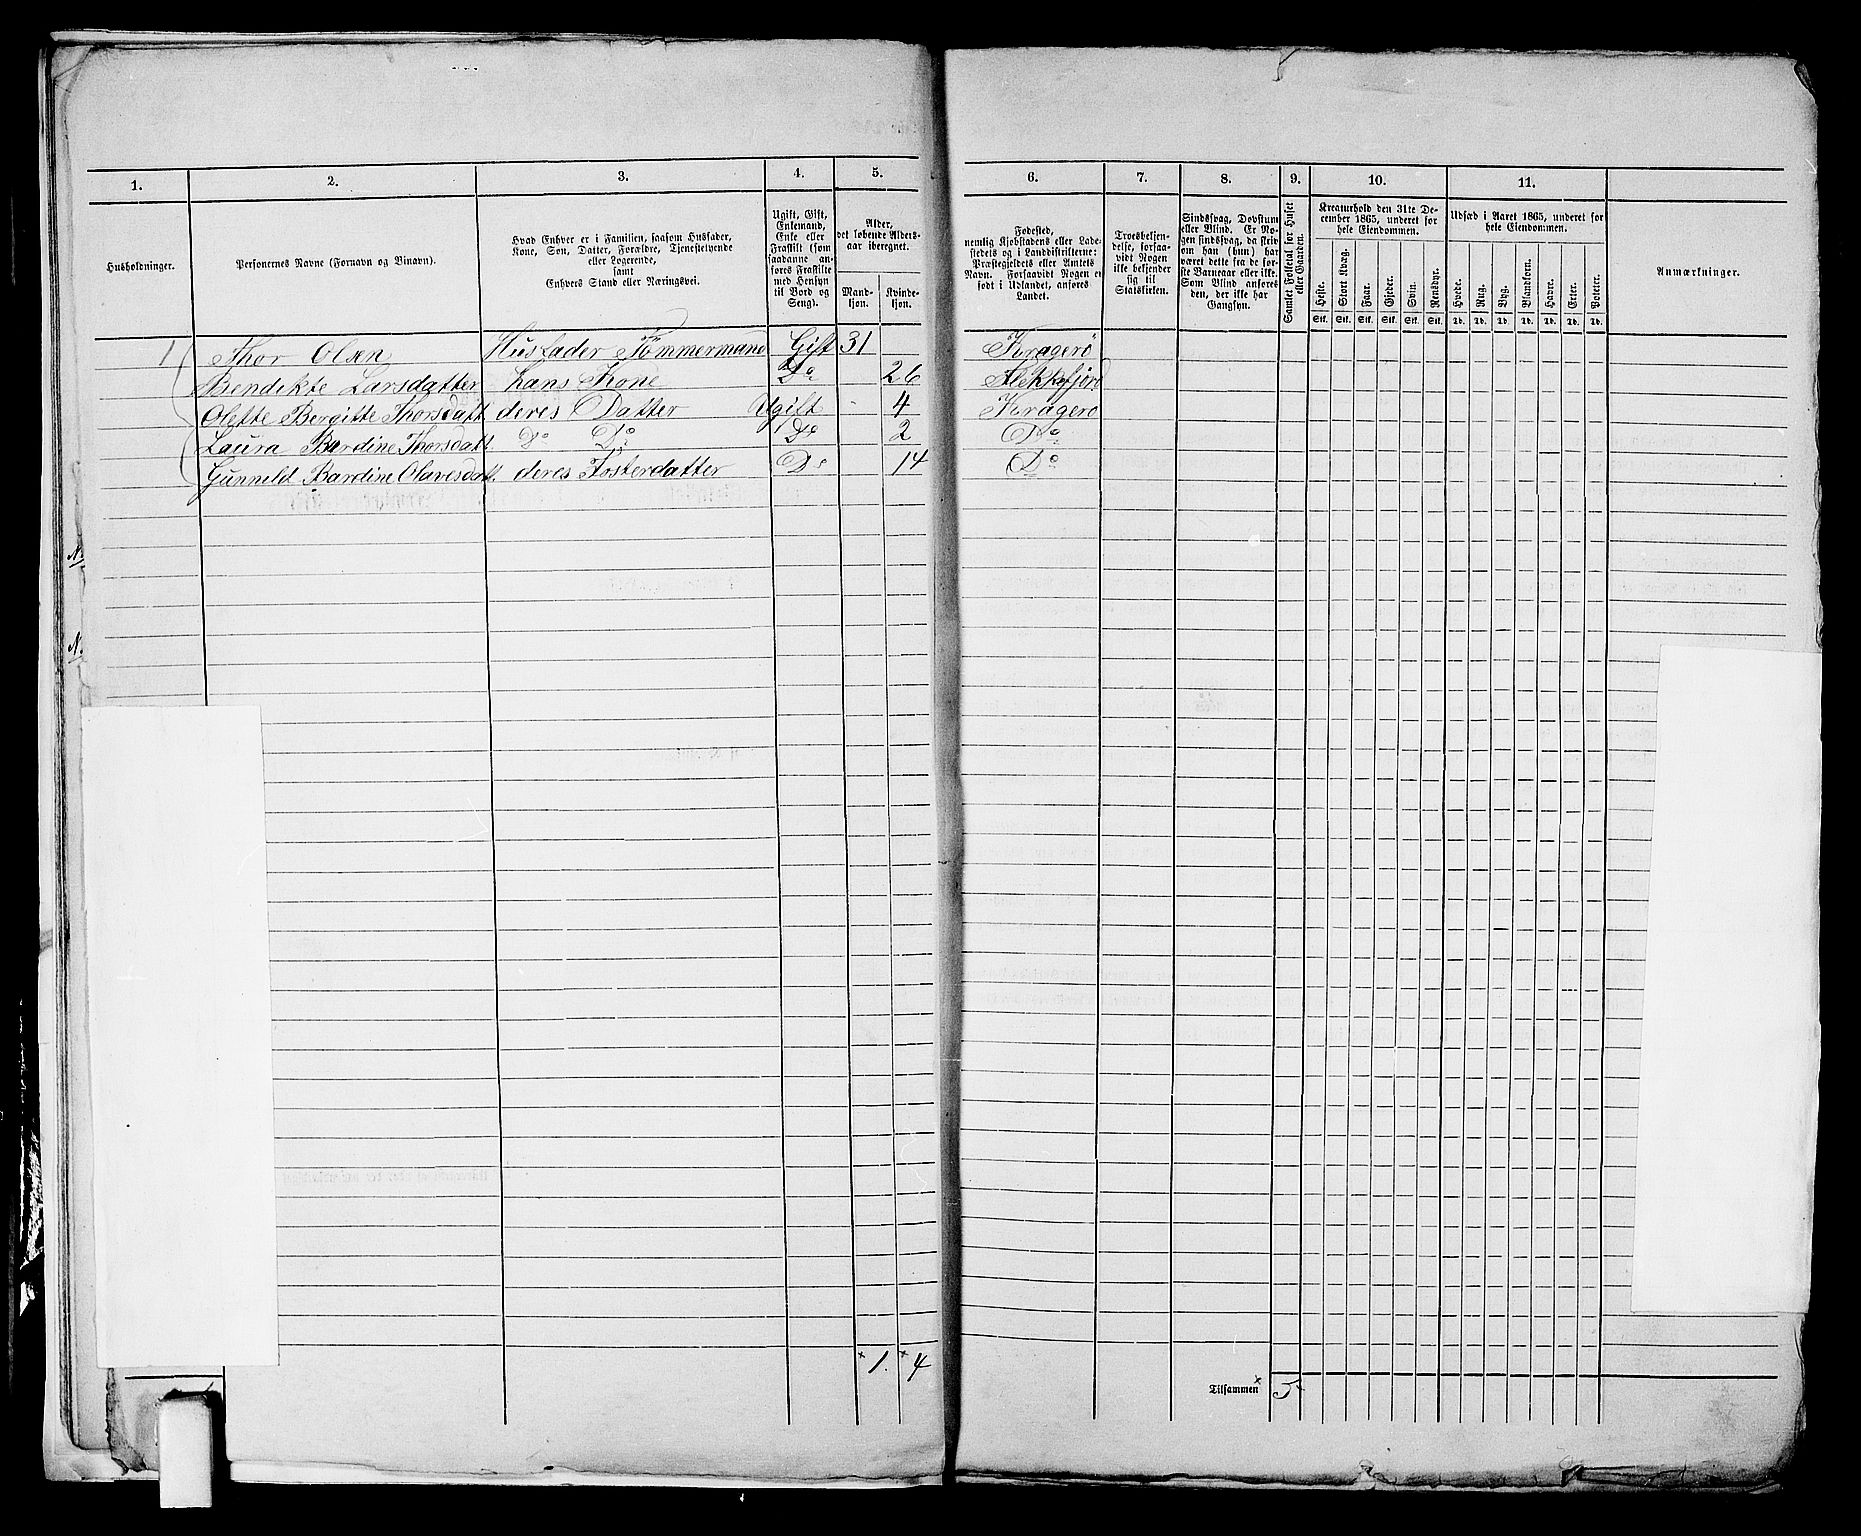 1. 2. 3. 4. 5. 6. 7. 8. 9. 10. 11.
Husholdninger.
Personernes Navne (Fornavn og Binavn).
Hvad Enhver er i Familien, saasom Husfader,
Kone, Søn, Datter, Forældre, Tjenestetyende
eller Logerende,
samt
Enhvers Stand eller Næringsvei.
Ugift, Gift,
Enkemand,
Enke eller
Fraskilt (som
saadanne an-
føres Fraskilte
med Hensyn
til Bord og
Seng).
Alder,
det løbende Alders-
aar iberegnet.
Mand-
kjøn.
Kvinde-
kjøn.
Fødested,
nemlig Kjøbstadens eller Lade-
stedets og i Landdistrikterne:
Præstegjeldets eller Amtets
Navn. Forsaavidt Nogen er
født i Udlandet, anføres
Landet.
Troesbekjen-
delse, forsaa-
vidt Nogen
ikke bekjender
sig til
Statskirken.
Sindssvag, Døvstum
eller Blind. Er No-
gen sindssvag, da skriv
om han (hun) har
været dette fra de før-
ste Barneaar eller ikke.
Som Blind anføres
den, der ikke har
Gangsyn.
Samlet Folketal for Huset
eller Gaarden.
Kreaturhold den 31te De-
cember 1865, underet for
hele Eiendommen.
Heste. Stort Kvæg. Faar. Gjeder. Svin. Rensdyr.
Stk. Stk. Stk. Stk. Stk. Stk.
Udsæd i Aaret 1865, underet for
hele Eiendommen.
Hvede. Rug. Byg. Blandkorn. Havre. Erter. Poteter.
Td. Td. Td. Td. Td. Td. Td.
Anmærkninger.
1 Thor Olsen Husfader Tömmermand Gift 31 Kragerö
Bendikte Larsdatter hans Kone Do 26 Flekkefjord
Olette Bergitte Thorsdatt deres Datter Ugift 4 Kragerö
Laura Bardine Thorsdatt. Do Do Do 2 Do
Gunnild Bardine Olavesdatt. deres Fosterdatter Do 14 Do
N.
N.
× 1. × 4
Tilsammen × 5